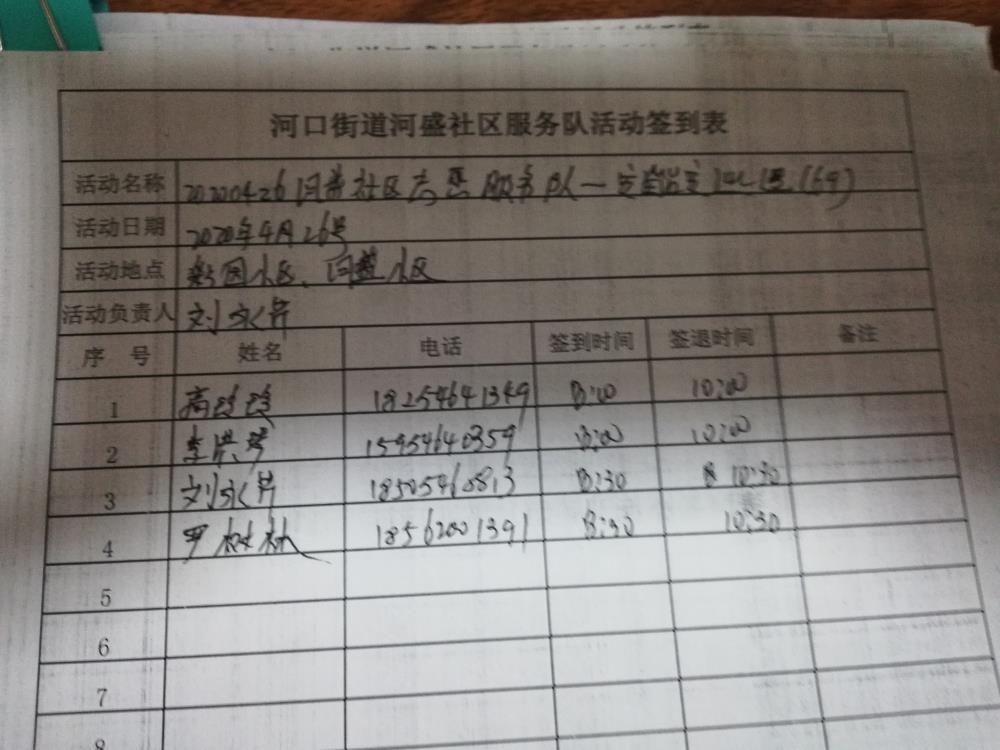 河口街道河盛社区服务队活动签到表
活动名称 20200426河盛社区志愿服务队一
活动日期 2020年4月26号
活动地点 小区、河盛小区
活动负责人 刘永芹
序 号 姓名 电话 签到时间 签退时间 备注
1 高玲玲 18254641349 8:00 10:00
2 李洪琴 15954640359 8:00 10:00
3 刘永芹 18505460813 8:30 10:30
4 罗树林 18562001391 8:30 10:30
5
6
7
8